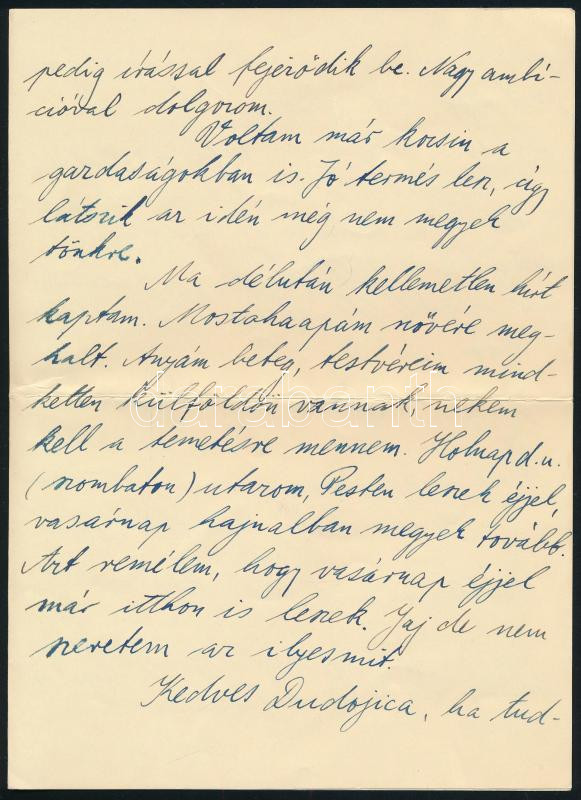 pedig írással fejeződik be. Nagy ambí-
cióval dolgozom.
Voltam már kocsin a
gazdaságokban is. Jó termés lesz, úgy
látszik az idén még nem megyek
tönkre.
Ma délután kellemetlen hírt
kaptam. Mostohaapám nővére meg-
halt. Anyám beteg, testvéreim mind-
ketten külföldön vannak, nekem
kell a temetésre mennem. Holnap d.u.
(szombaton) utazom, Pesten leszek éjjel,
vasárnap hajnalban megyek tovább.
Azt remélem, hogy vasárnap éjjel
már itthon is leszek. Jaj de nem
szeretem az ilyesmit.
Kedves Dudojica, ha tud-
darabanth